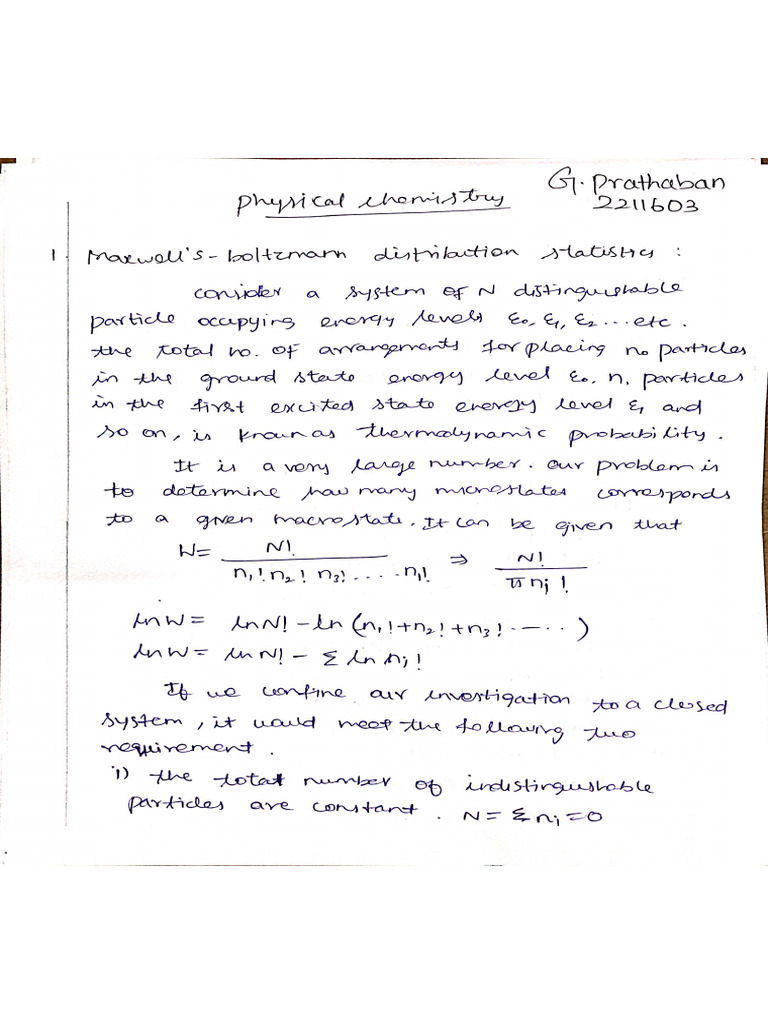 G. Prathaban
Physical chemistry
2211603
1. Maxwell's - boltzmann distribution statistics :
consider a system of N distinguishable
particle occupying energy levels ε0, ε1, ε2 ... etc.
the total no. of arrangements for placing n0 particles
in the ground state energy level ε0, n1 particles
in the first excited state energy level ε1 and
so on, is known as thermodynamic probability.
It is a very large number. our problem is
to determine how many microstates corresponds
to a given macrostate. It can be given that
W = N! / n1! n2! n3! .... n1! ⇒ N! / π ni!
ln W = ln N! - ln (n1! + n2! + n3! .....)
ln W = ln N! - Σ ln ni!
If we confine our investigation to a closed
system, it would meet the following two
requirement.
i) the total number of indistinguishable
particles are constant. N = Σ ni = 0